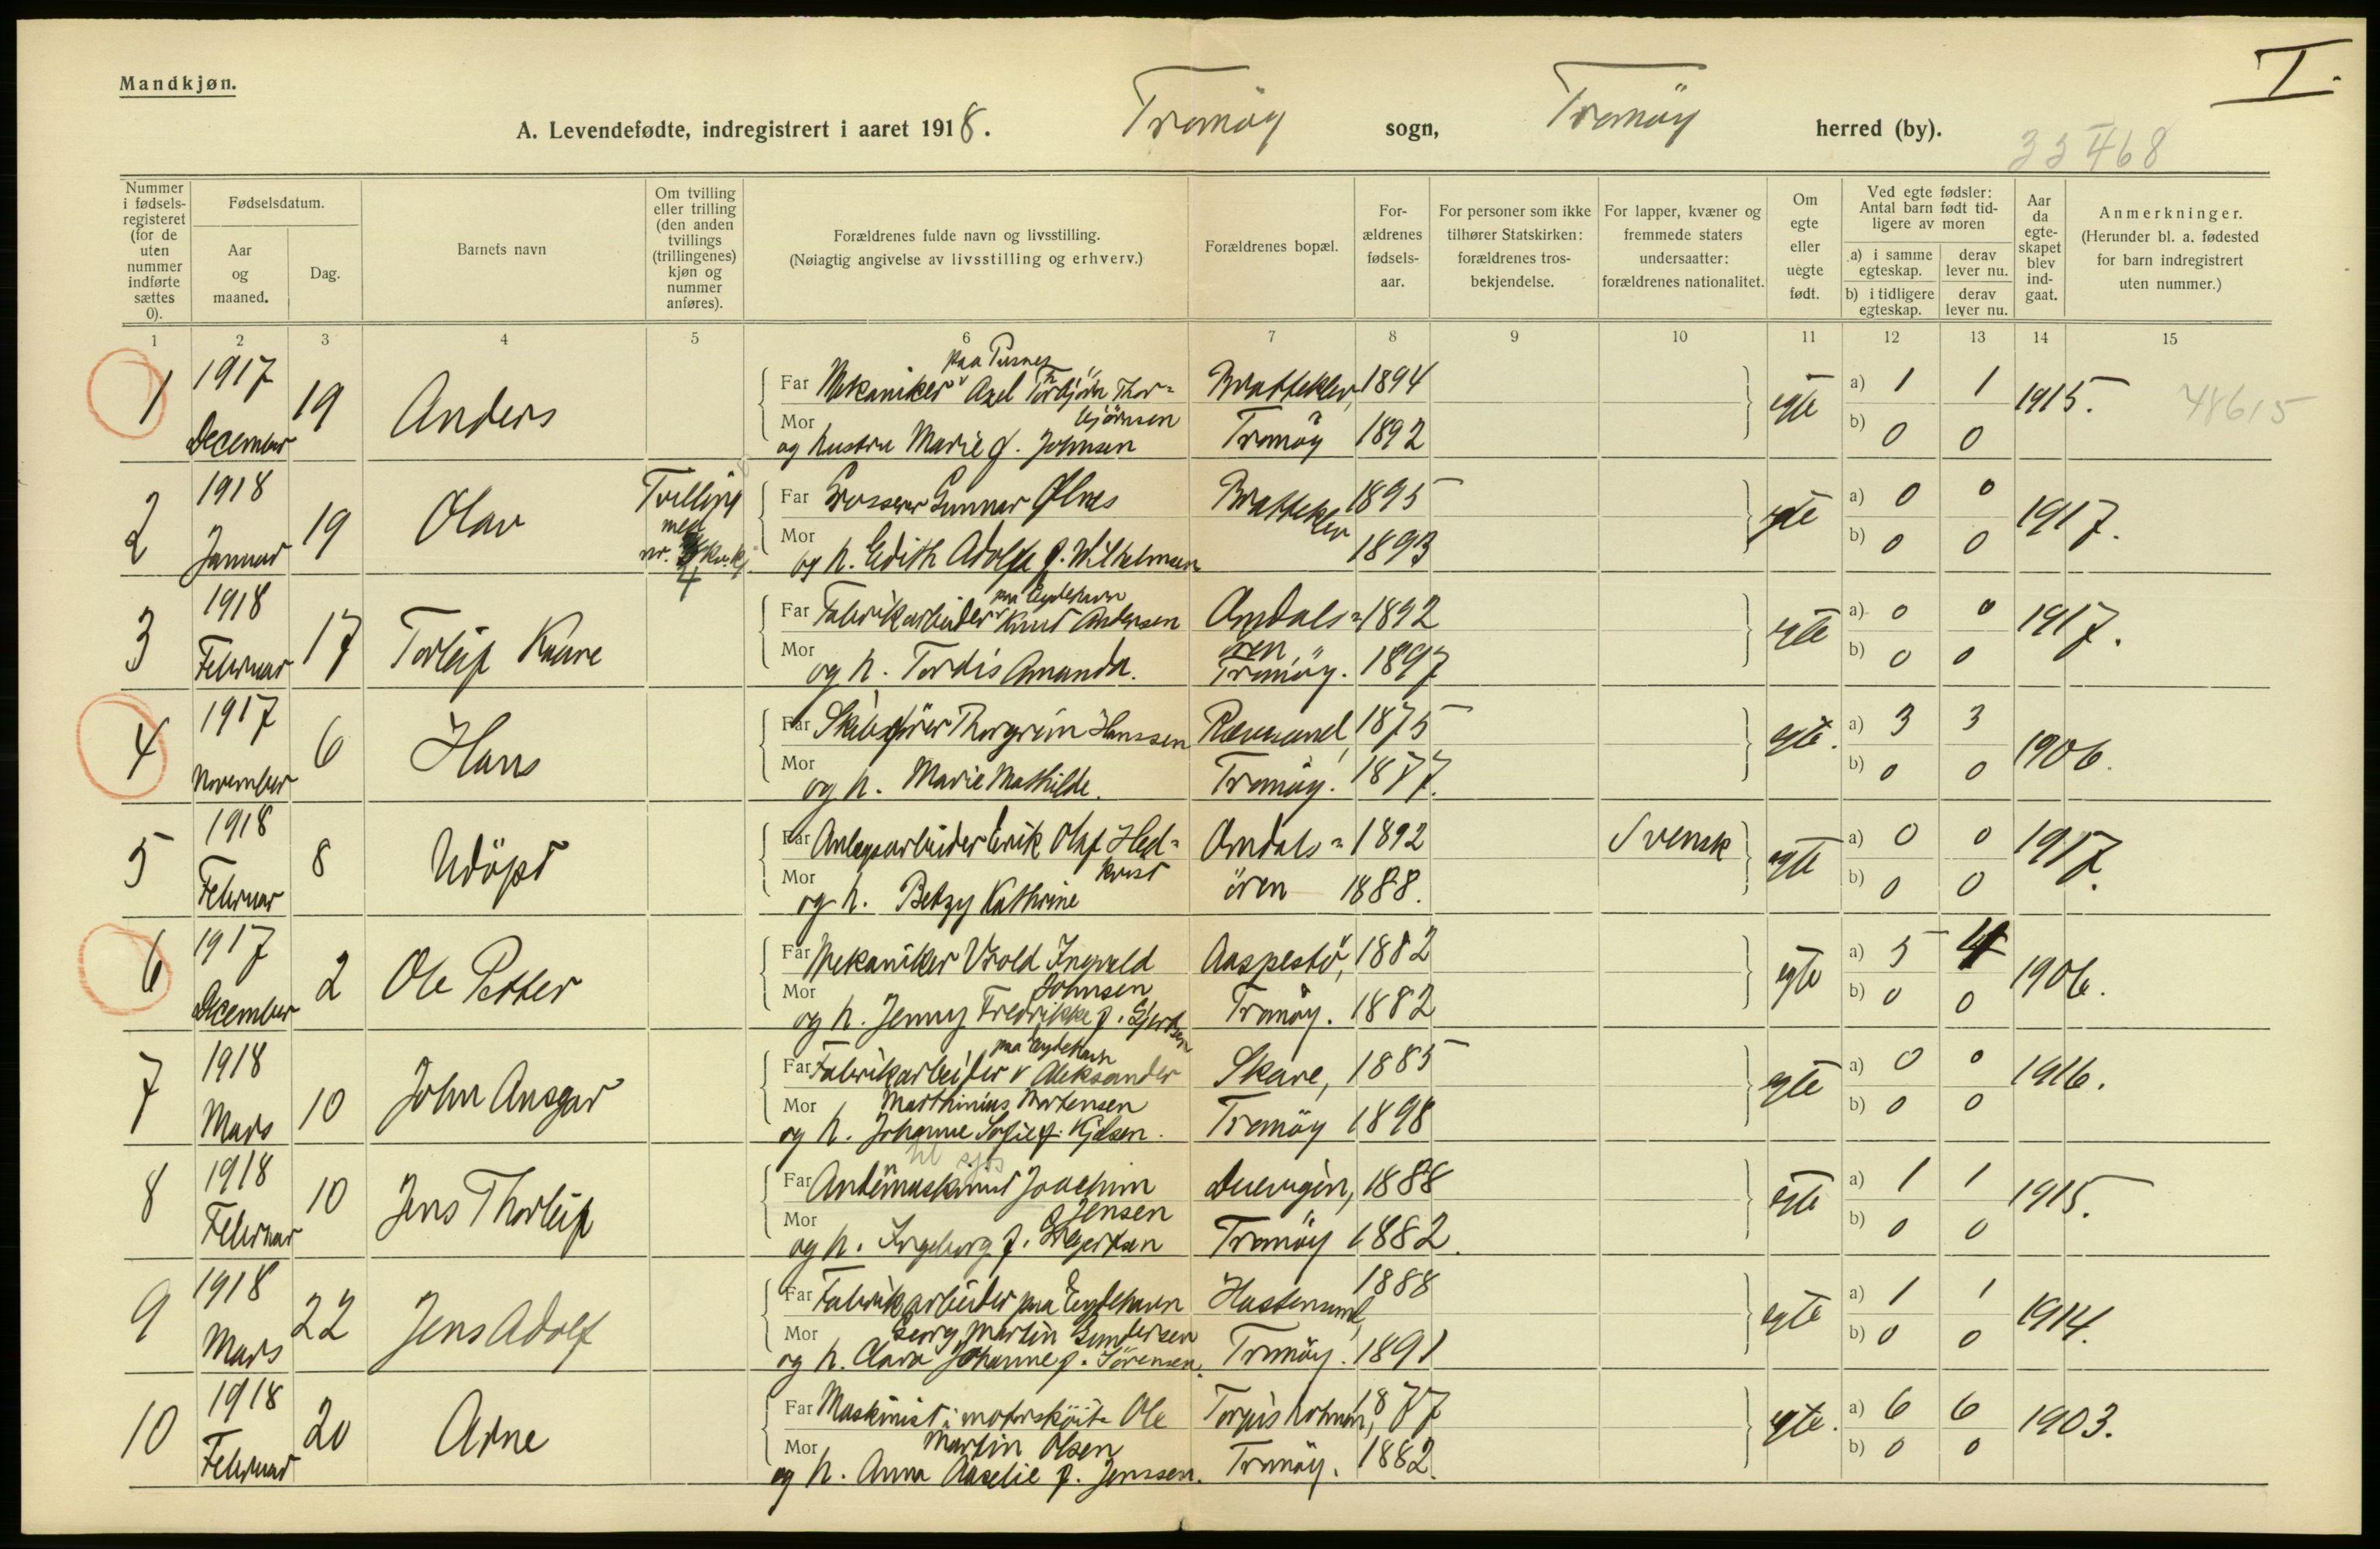 I.
Mandkjøn.
A. Levendefødte, indregistrert i aaret 1918. Tromöy sogn, Tromöy herred (by).
33468
Nummer i fødselsregisteret (for de uten nummer indførte sættes 0).
Fødselsdatum.
Aar og maaned.
Dag.
Barnets navn
Om tvilling eller trilling (den anden tvillings (trillingenes) kjøn og nummer anføres).
Forældrenes fulde navn og livsstilling.
(Nøiagtig angivelse av livsstilling og erhverv.)
Forældrenes bopæl.
Forældrenes fødselsaar.
For personer som ikke tilhører Statskirken: forældrenes trosbekjendelse.
For lapper, kvæner og fremmede staters undersaatter: forældrenes nationalitet.
Om egte eller uegte født.
Ved egte fødsler: Antal barn født tidligere av moren
a) i samme egteskap.
derav lever nu.
b) i tidligere egteskap.
derav lever nu.
Aar da egteskapet blev indgaat.
Anmerkninger.
(Herunder bl. a. fødested for barn indregistrert uten nummer.)
1 2 3 4 5 6 7 8 9 10 11 12 13 14 15
1 1917 December 19 Anders
paa Pusnes
Far Mekaniker Axel Torbjörn Thor=
bjørnsen
Mor og hustru Marie f. Johnsen
Bratteklev, Tromöy 1894 1892 egte a) 1 1 b) 0 0 1915. 48615
2 1918 Januar 19 Olav
Tvilling med nr. 4 kv.kj
Far Grosserer Gunnar Ølnes
Mor og h. Edith Adolfa f. Wilhelmsen
Bratteklev 1895 1893 egte a) 0 0 b) 0 0 1917.
3 1918 Februar 17 Torleif Kaare
paa Eydehavn
Far Fabrikarbeider Knut Andersen
Mor og h. Tordis Amanda.
Omdals=ören Tromöy. 1892 1897 egte a) 0 0 b) 0 0 1917.
4 1917 November 6 Hans
Far Skibsfører Thorgrim Hanssen
Mor og h. Marie Mathilde.
Rævesand, Tromöy. 1875 1877. egte. a) 3 3 b) 0 0 1906.
5 1918 Februar 8 Udöpt
Far Anlegsarbeider Erik Olaf Hed=
kvist
Mor og h. Betzy Kathrine
Omdals=ören 1892 1888. Svensk egte a) 0 0 b) 0 0 1917.
6 1917 December 2 Ole Petter
Far Mekaniker Vrold Ingvald
Johnsen
Mor og h. Jenny Fredrikke f. Gjertsen
Aaspestö, Tromöy. 1882 1882 egte a) 5 4 b) 0 0 1906.
7 1918 Mars 10 John Ansgar
paa Eydehavn
Far Fabrikarbeider Aleksander
Marthinius Mortensen
Mor og h. Johanne Sofie f. Kjelsen.
Skare, Tromöy 1885 1898 egte a) 0 0 b) 0 0 1916.
8 1918 Februar 10 Jens Thorleif
til sjös
Far Andenmaskinist Joachim
Jensen
Mor og h. Ingeborg f. Gjertsen
Duevigen, Tromöy 1888 1882. egte a) 1 1 b) 0 0 1915.
9 1918 Mars 22 Jens Adolf
Far Fabrikarbeider paa Eydehavn
Georg Martin Gundersen
Mor og h. Clara Johanne f. Sörensen.
Hastensund, Tromöy. 1888 1891 egte a) 1 1 b) 0 0 1914.
10 1918 Februar 20 Arne
Far Maskinist i motorsköite Ole
Martin Olsen
Mor og h. Anna Aaselie f. Jenssen.
Torjusholmen, Tromöy. 1877 1882. egte. a) 6 6 b) 0 0 1903.